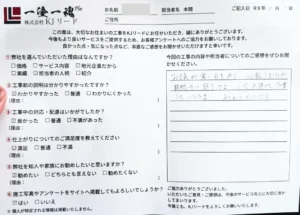 一漆一魂
株式会社KJリード
お名前
担当者名 本間
ご記入日
ご住所
この度は、大切なお住まいの工事をKJリードにお任せいただき、誠にありがとうございます。
今後もより良いサービスをご提供するため、お客様アンケートへのご協力をお願いしております。
良かった点・気になった点など、率直なご感想をお聞かせいただけますと幸いです。
①弊社を選んでいただいた理由はなんですか?
価格 サービス内容 地元企業だから
実績 担当者の人柄 紹介
②工事前の説明は分かりやすかったですか?
わかりやすかった 普通 わかりにくかった
(理由: )
③工事中の対応・配慮はいかがでしたか?
良かった 普通 不満があった
(理由: )
④仕上がりについてのご満足度を教えてください
満足 普通 不満
(理由: )
⑤弊社を知人や家族にお勧めしたいと思いますか?
勧めたい どちらとも言えない 勧めたくない
(理由: )
⑥施工写真やアンケートをサイトへ掲載してもよろしいでしょうか?
はい いいえ
※個人が特定される情報は掲載いたしません。
今回の工事の内容や担当者についてのご感想をぜひお聞かせください。
ご協力ありがとうございました。
今後とも、KJリードをよろしくお願いいたします。